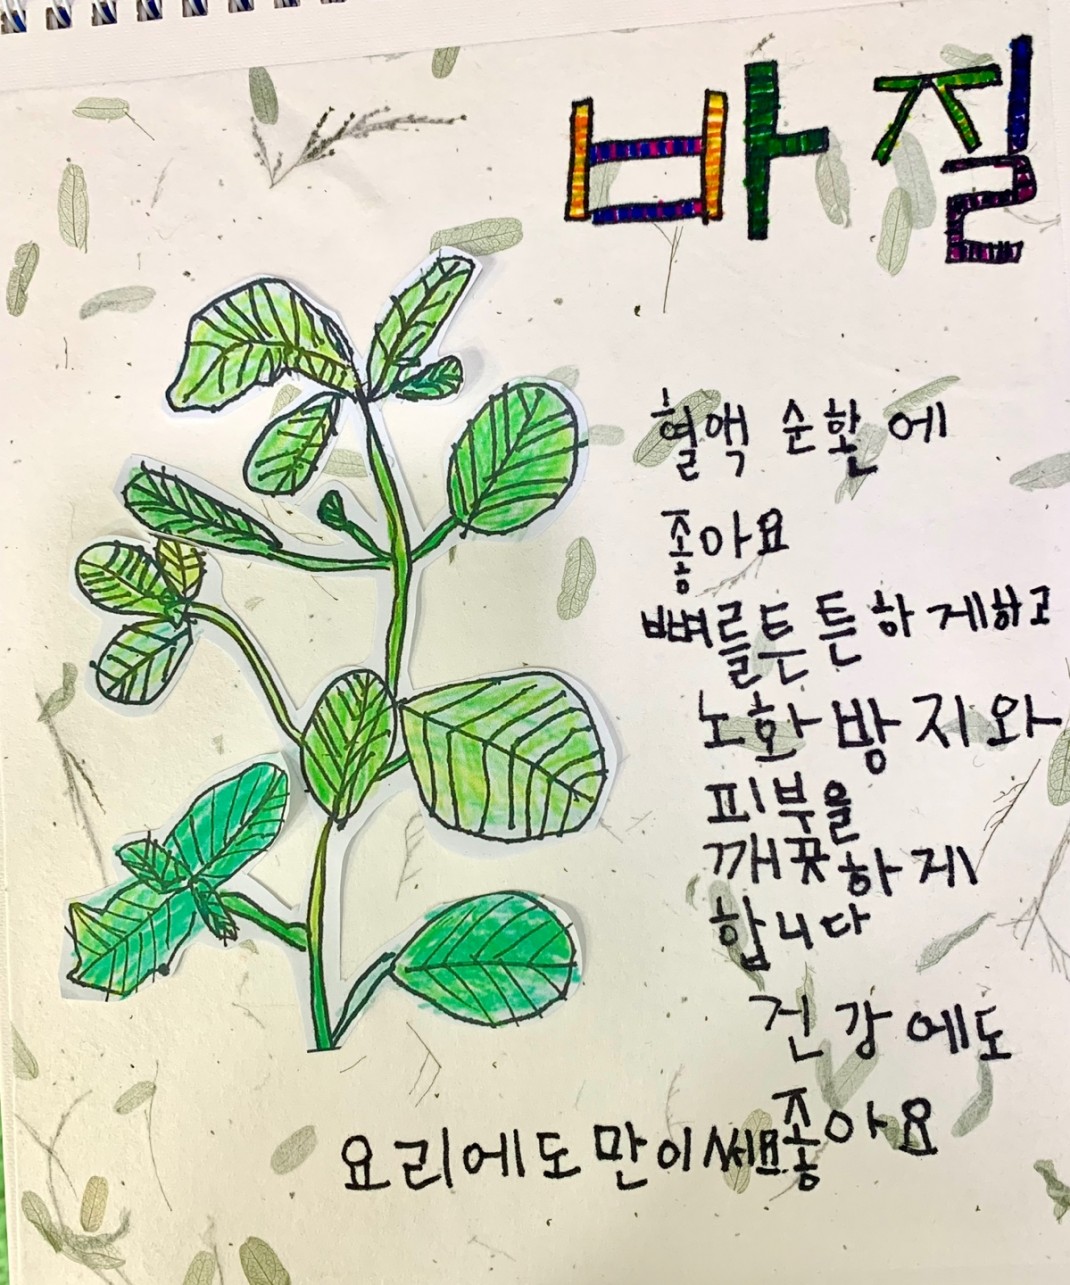 바질
혈액 순환에
좋아요
뼈를튼튼하게하고
노화방지와
피부을
깨끗하게
합니다
건강에도
좋아요
요리에도만이써요